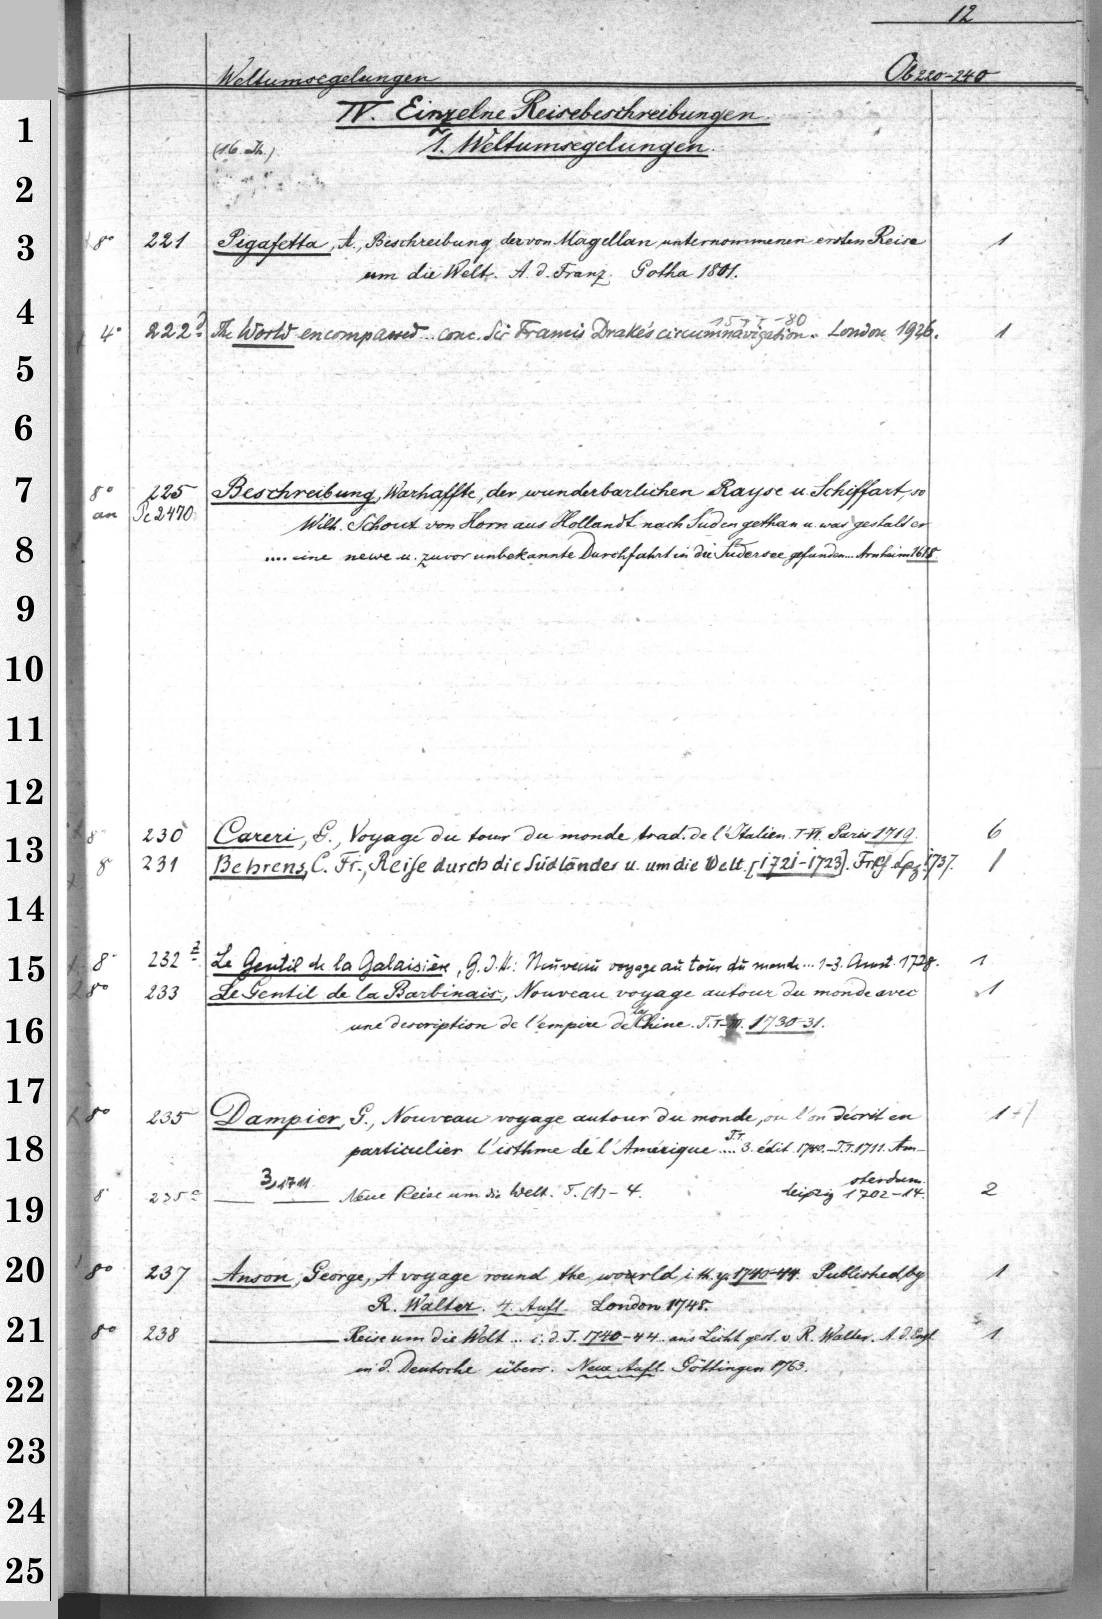 12
Weltumsegelungen Ob 220-240
1 IV. Einzelne Reisebeschreibungen
(16. Jh.) 1. Weltumsegelungen.
2
3 8° 221 Pigafetta, A., Beschreibung der von Magellan unternommenen ersten Reise 1
um die Welt. A. d. Franz. Gotha 1801.
4 1577-80
4° 222 The World encompassed... conc. Sir Francis Drake's circumnavigation. London 1926. 1
5
6
7 8° 225 Beschreibung, Warhaffte, der wunderbarlichen Rayse u. Schiffart, so
an Pc 2470 Wilh. Schout von Horn aus Hollandt nach Suden gethan u. was gestalt er
8 .... eine newe u. zuvor unbekannte Durchfahrt in die Sudersee gefunden... Arnheim 1618
9
10
11
12
13 8° 230 Careri, G., Voyage du tour du monde, trad. de l'Italien. T-VI. Paris 1719. 6
8° 231 Behrens, C. Fr., Reise durch die Südländer u. um die Welt. [1721-1723]. Frkf. Lpz. 1737. 1
14
15 8° 232 Le Gentil de la Galaisière, G. J. H.: Nouveau voyage au tour du monde... 1-3. Amst. 1728. 1
8° 233 Le Gentil de la Barbinais, Nouveau voyage autour du monde avec 1
16 une description de l'empire de la Chine. T. I-III. 1730-31.
17
8° 235 Dampier, G., Nouveau voyage autour du monde, ou l'on décrit en 1
18 particulier l'isthme de l'Amérique .... T.I. 3. édit. 1740. - T.I. 1711. Am-
3, 1711. sterdam.
19 8° 235 a Neue Reise um die Welt. T. (1) - 4. Leipzig 1702-14. 2
20 8° 237 Anson, George, A voyage round the world i. th. y. 1740-44. Published by 1
R. Walter. 4. Aufl. London 1748.
21 8° 238 Reise um die Welt... i. d. J. 1740-44 ans Licht gest. v. R. Walter. A. d. Engl. 1
22 in d. Deutsche übers. Neue Aufl. Göttingen 1763.
23
24
25